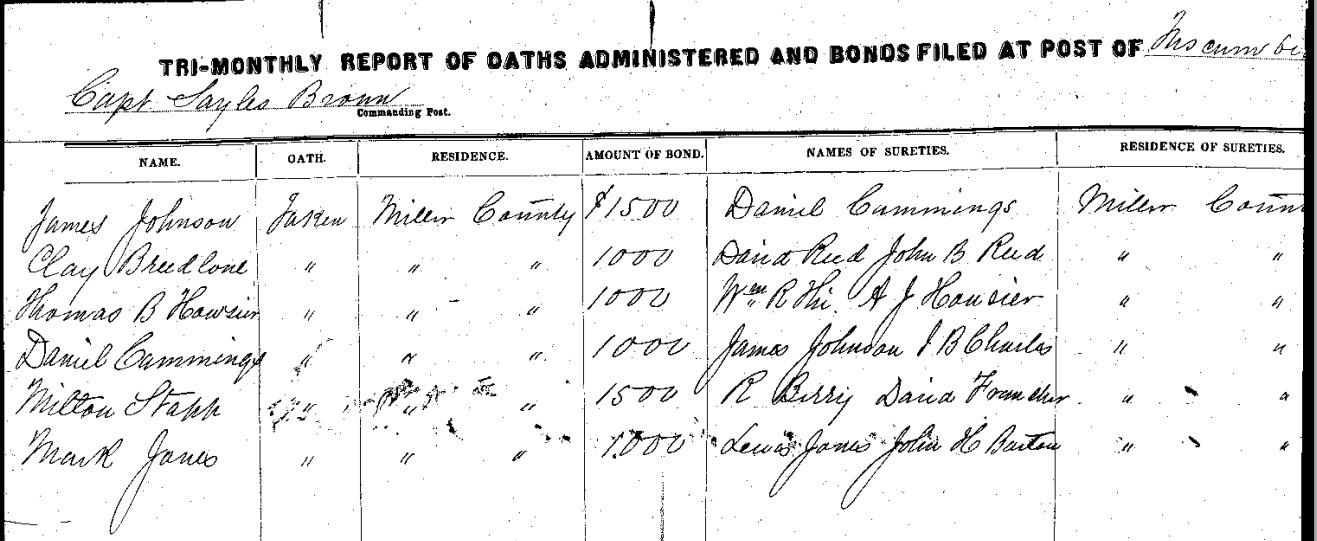 TRI-MONTHLY REPORT OF OATHS ADMINISTERED AND BONDS FILED AT POST OF Tuscumbi
Capt Sayles Brown
Commanding Post.
NAME. OATH. RESIDENCE. AMOUNT OF BOND. NAMES OF SURETIES. RESIDENCE OF SURETIES.
James Johnson Taken Miller County $1500 Daniel Cummings Miller Coun
Clay Breedlove " " " 1000 David Reed John B Reed " "
Thomas B Howsier " " " 1000 Wm R A J Housier " "
Daniel Cummings " " " 1000 James Johnson J B Charles " "
Milton Stapp " " " 1500 R Berry David Francher " "
Mark Jones " " " 1.000 Lewis Jones John H Barton " "